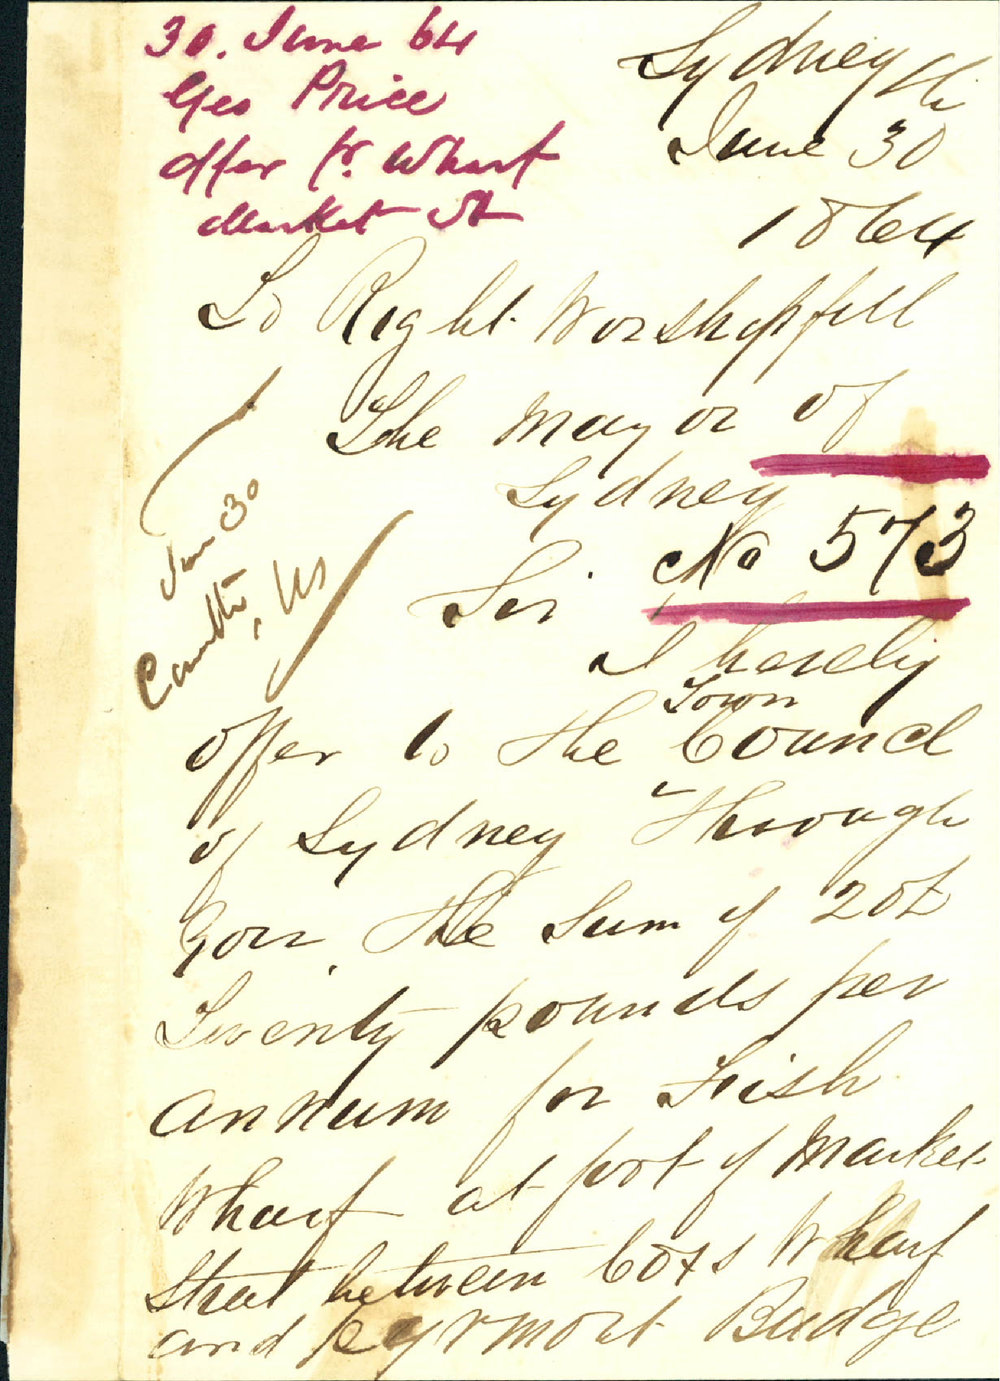 30. June 64
Geo Price
offer fr. Wharf
Market St
Sydney
June 30
1864
To Right Worshipfull
The Mayor of
Sydney
No 573
Sir
June 30
I hereby
Town
offer to the Council
of Sydney Through
you. The Sum of 20£
Twenty pounds per
annum for Fish
Wharf at foot of Market
Street between Coxs Wharf
and Peyrmont Bridge